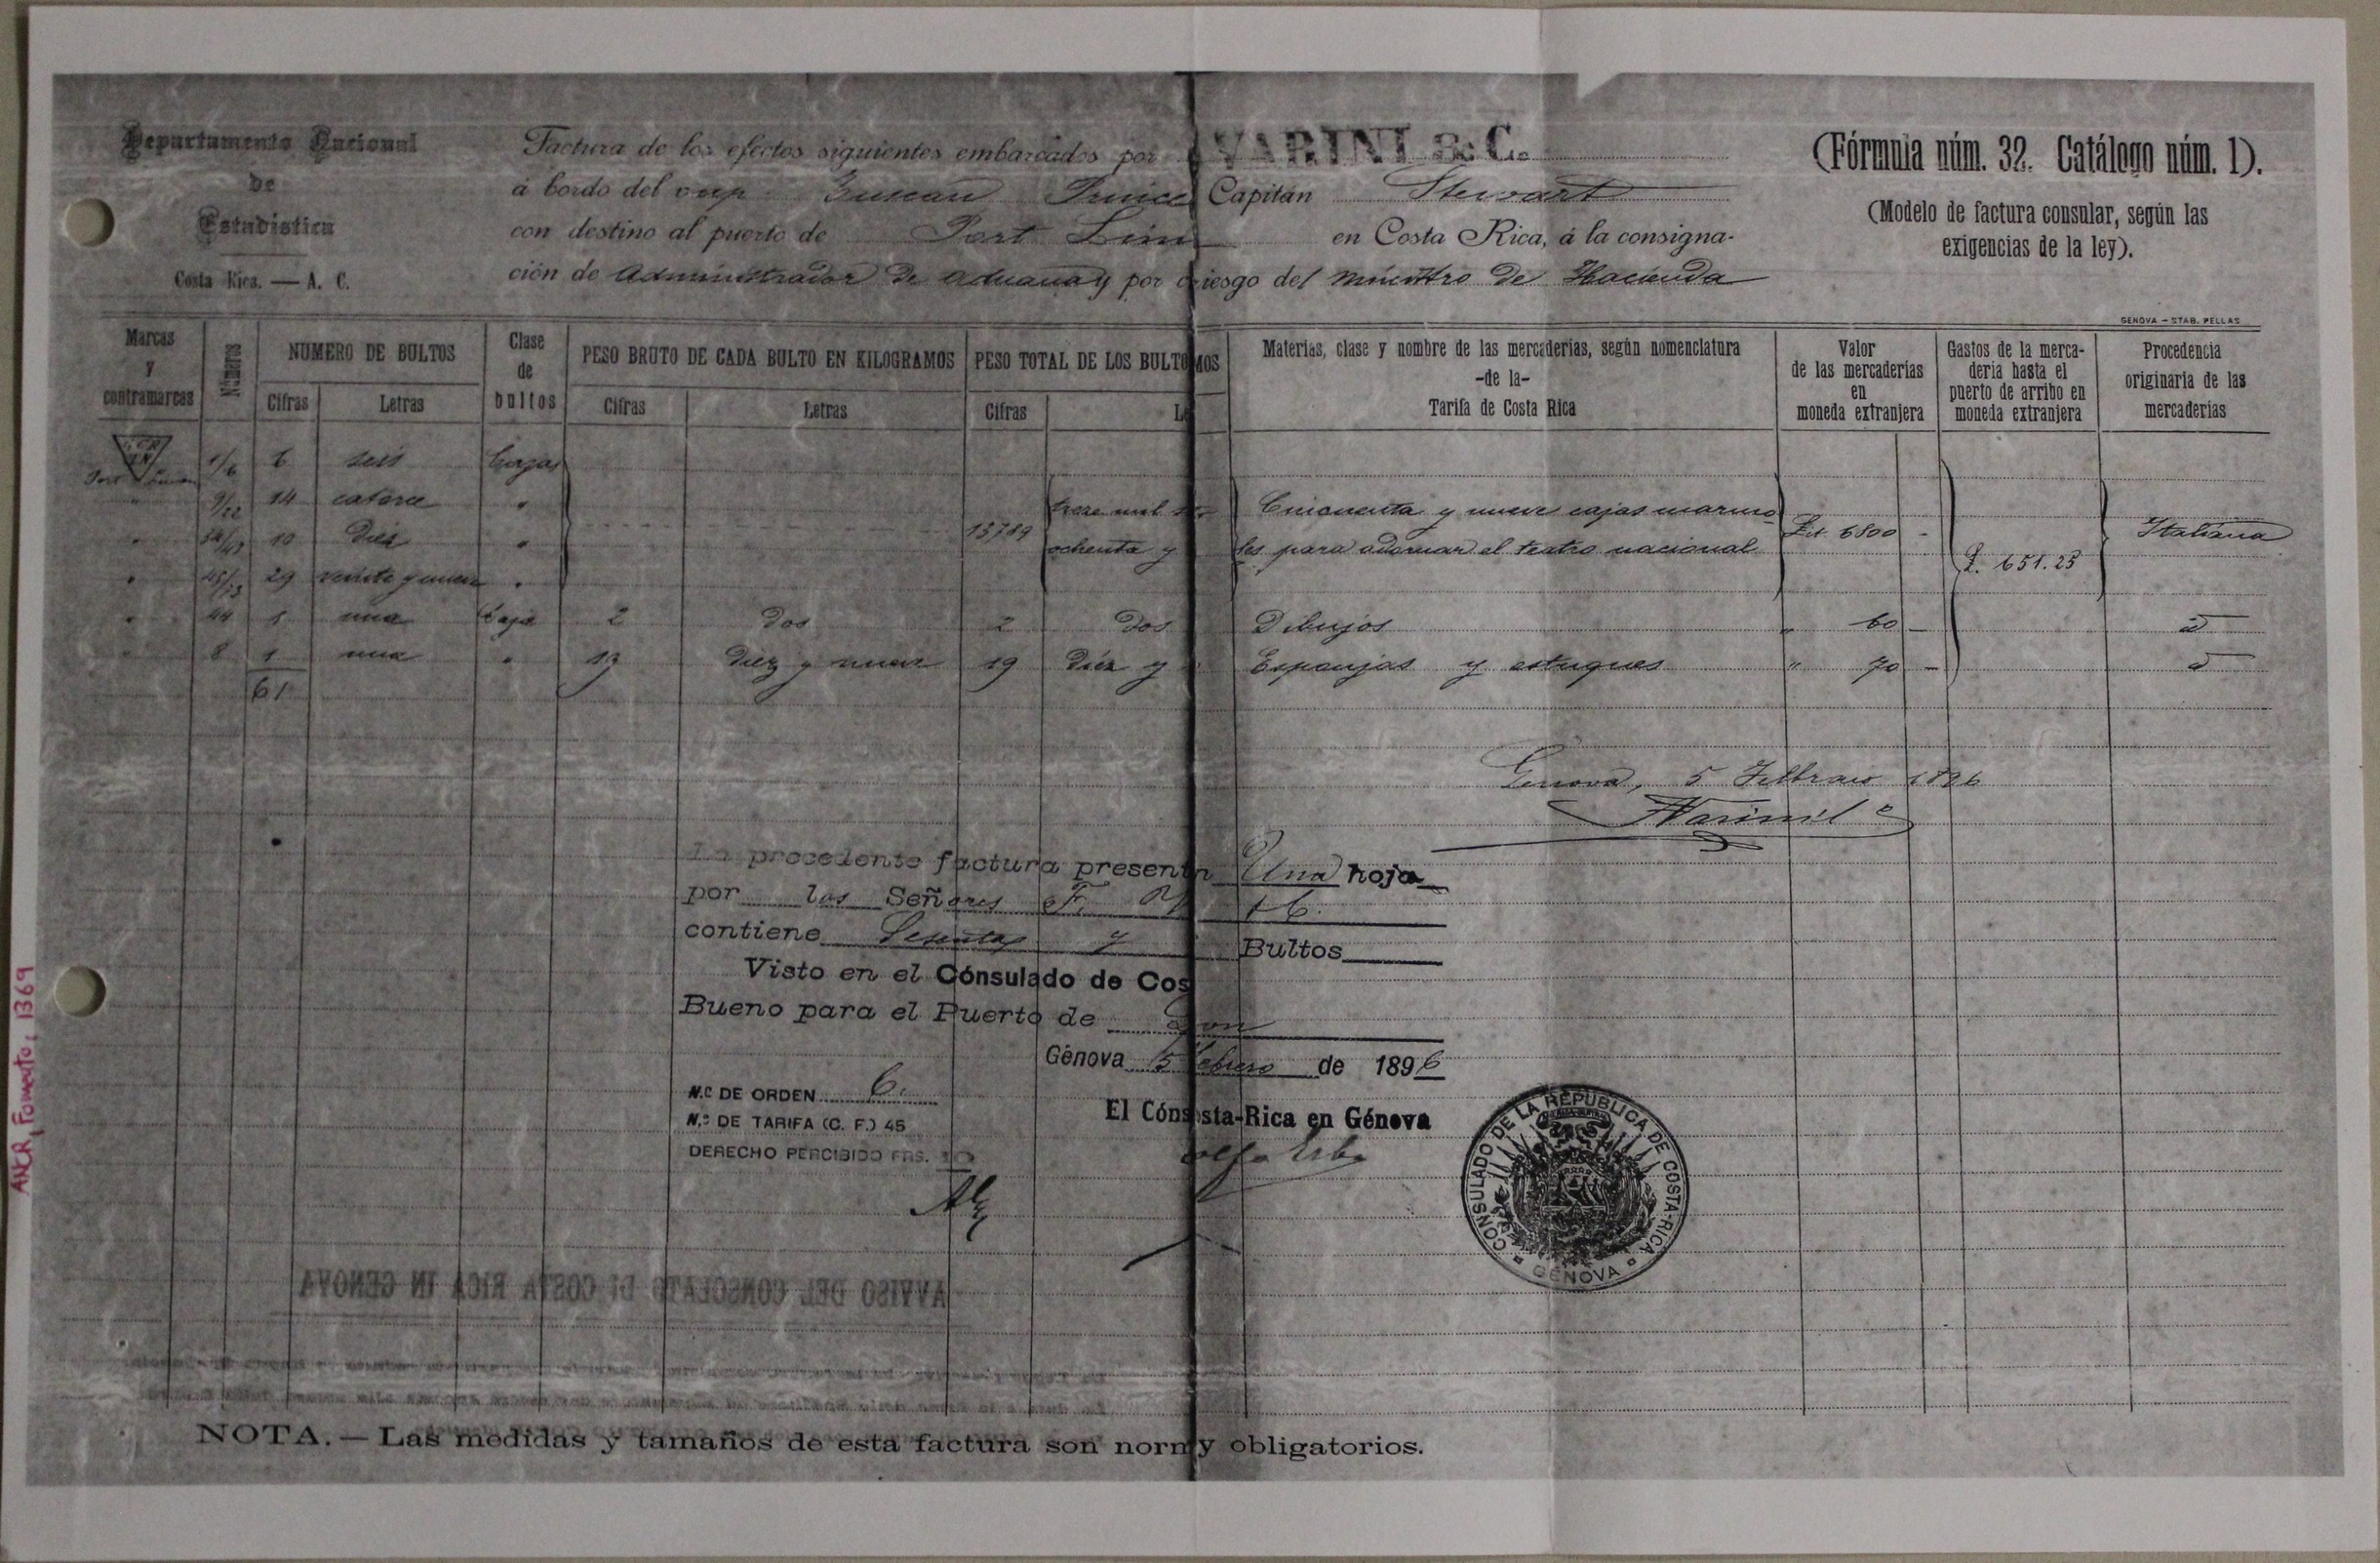 Departamento Nacional
de
Estadística
Costa Rica. — A. C.
Factura de los efectos siguientes embarcados por VARINI & C.
á bordo del vap Tuscan Prince Capitán Stewart
con destino al puerto de Port Lim en Costa Rica, á la consigna-
ción de Administrador de aduana y por riesgo del ministro de Hacienda
(Fórmula núm. 32. Catálogo núm. 1).
(Modelo de factura consular, según las
exigencias de la ley).
GENOVA – STAB. PELLAS
Marcas y contramarcas
Números
NUMERO DE BULTOS
Cifras Letras
Clase de bultos
PESO BRUTO DE CADA BULTO EN KILOGRAMOS
Cifras Letras
PESO TOTAL DE LOS BULTO MOS
Cifras Le
Materias, clase y nombre de las mercaderías, según nomenclatura
-de la-
Tarifa de Costa Rica
Valor
de las mercaderías
en
moneda extranjera
Gastos de la merca-
dería hasta el
puerto de arribo en
moneda extranjera
Procedencia
originaria de las
mercaderías
1/6 6 seis Cajas
9/22 14 catorce " trece mil Cincuenta y nueve cajas marmo
34/43 10 Diez " 13789 ochenta y les para adornar el teatro nacional Lit 6800 - Italiana
45/73 29 veinte y nueve " L. 651.25
" 44 1 una Caja 2 Dos 2 Dos Dibujos " 60 –
" 8 1 una " 19 Diez y nueve 19 Diez y Esponjas y estuques " 70 –
61
Genova, 5 Febbraio 1896
Varini & C
La precedente factura present Una hoja
por los Señores F. & C.
contiene Sesenta y Bultos
Visto en el Cónsulado de Cos
Bueno para el Puerto de
Génova 5 Febrero de 1896
N.º DE ORDEN 6.
N.º DE TARIFA (C. F.) 45
DERECHO PERCIBIDO FRS. 10
El Cóns sta-Rica en Génova
CONSULADO DE LA REPUBLICA DE COSTA-RICA
GÉNOVA
AVVISO DEL CONSOLATO DI COSTA RICA IN GENOVA
NOTA. — Las medidas y tamaños de esta factura son norm y obligatorios.
ANCR, Fomento, 1369